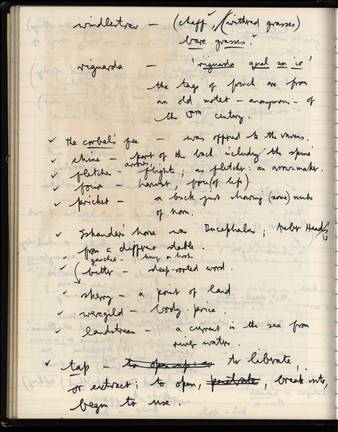 windlestraw — (chaff, / (withered grasses)
bare grasses.
riguarda — 'riguarda qual son io'
the tags of french are from
an old motet – anonymous – of
the 13th century.
✓ the corbels' fee — was offered to the ravens.
✓ chine — part of the back including the spine
✓ fletcher – arrow flight; as fletcher: an arrow-maker.
✓ four – 
✓ pricket — a buck just showing (sore) nubs
of horn.
✓ Iskander's horse was Bucephalus;
✓ from a different stable.
✓ gauche.
(better – deep-rooted word.
✓ skerry – a point of land
✓ weregild – body-price.
✓ landstream — a current in the sea from
river waters.
✓ tap — to open up to liberate,
or extract; to open, penetrate, break into,
begin to use.